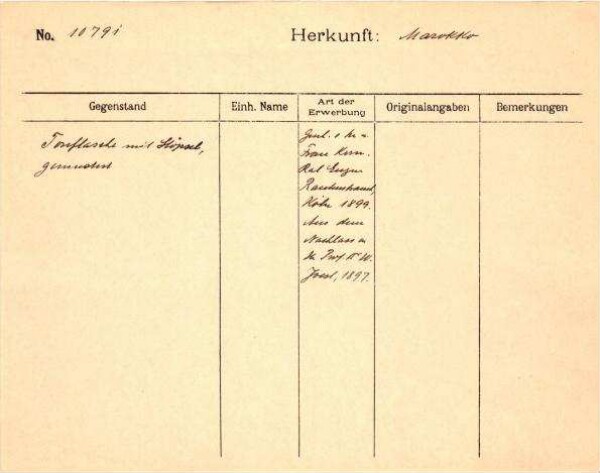 No. 10791
Herkunft: Marokko
Gegenstand
Einh. Name
Art der
Erwerbung
Originalangaben
Bemerkungen
Tonflasche mit Stöpsel,
gemustert
Gesch.
Frau Kom.
Rat Eugen
Rautenstrauch,
Köln 1899.
Aus dem
Nachlass
Prof. Dr. W.
Joest, 1897.